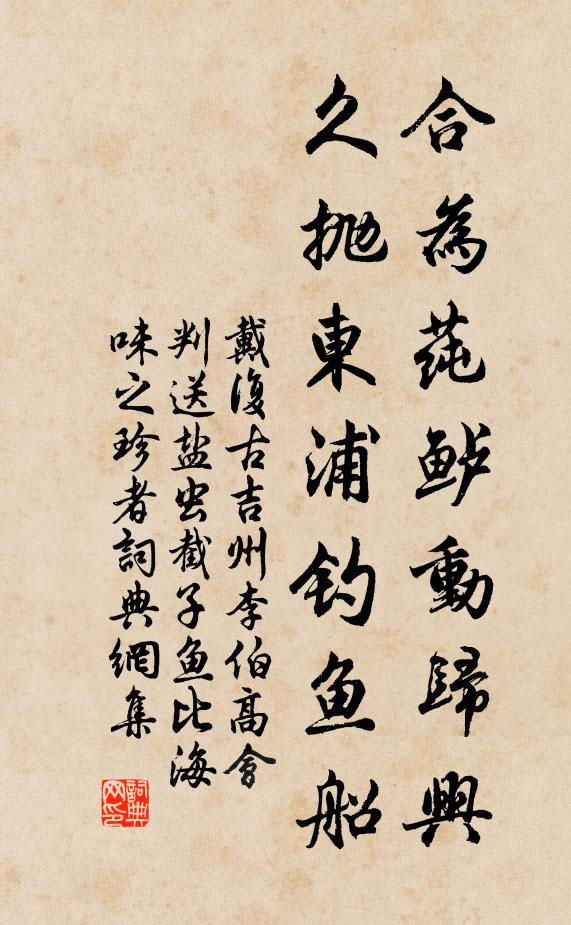 合為莼鲈動歸興
久抛東浦钓鱼船
戴復古吉州李伯高會
判送盐虫截子鱼比海
味之珍者詞典網集
詞典网印